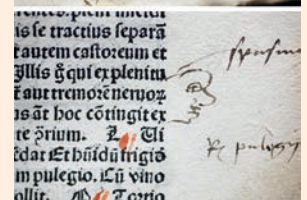 is se tractius separā
t autem castoreum et
Illis ḡ qui ex plenitu
t aut tremorē nemoꝝ
us āt hoc cōtingit ex
te p̄rium. Ui
cdat Et hn̄idū frigis
m pulegio. Cū vino
ollit. Tortio
spasm
℞ pulegij